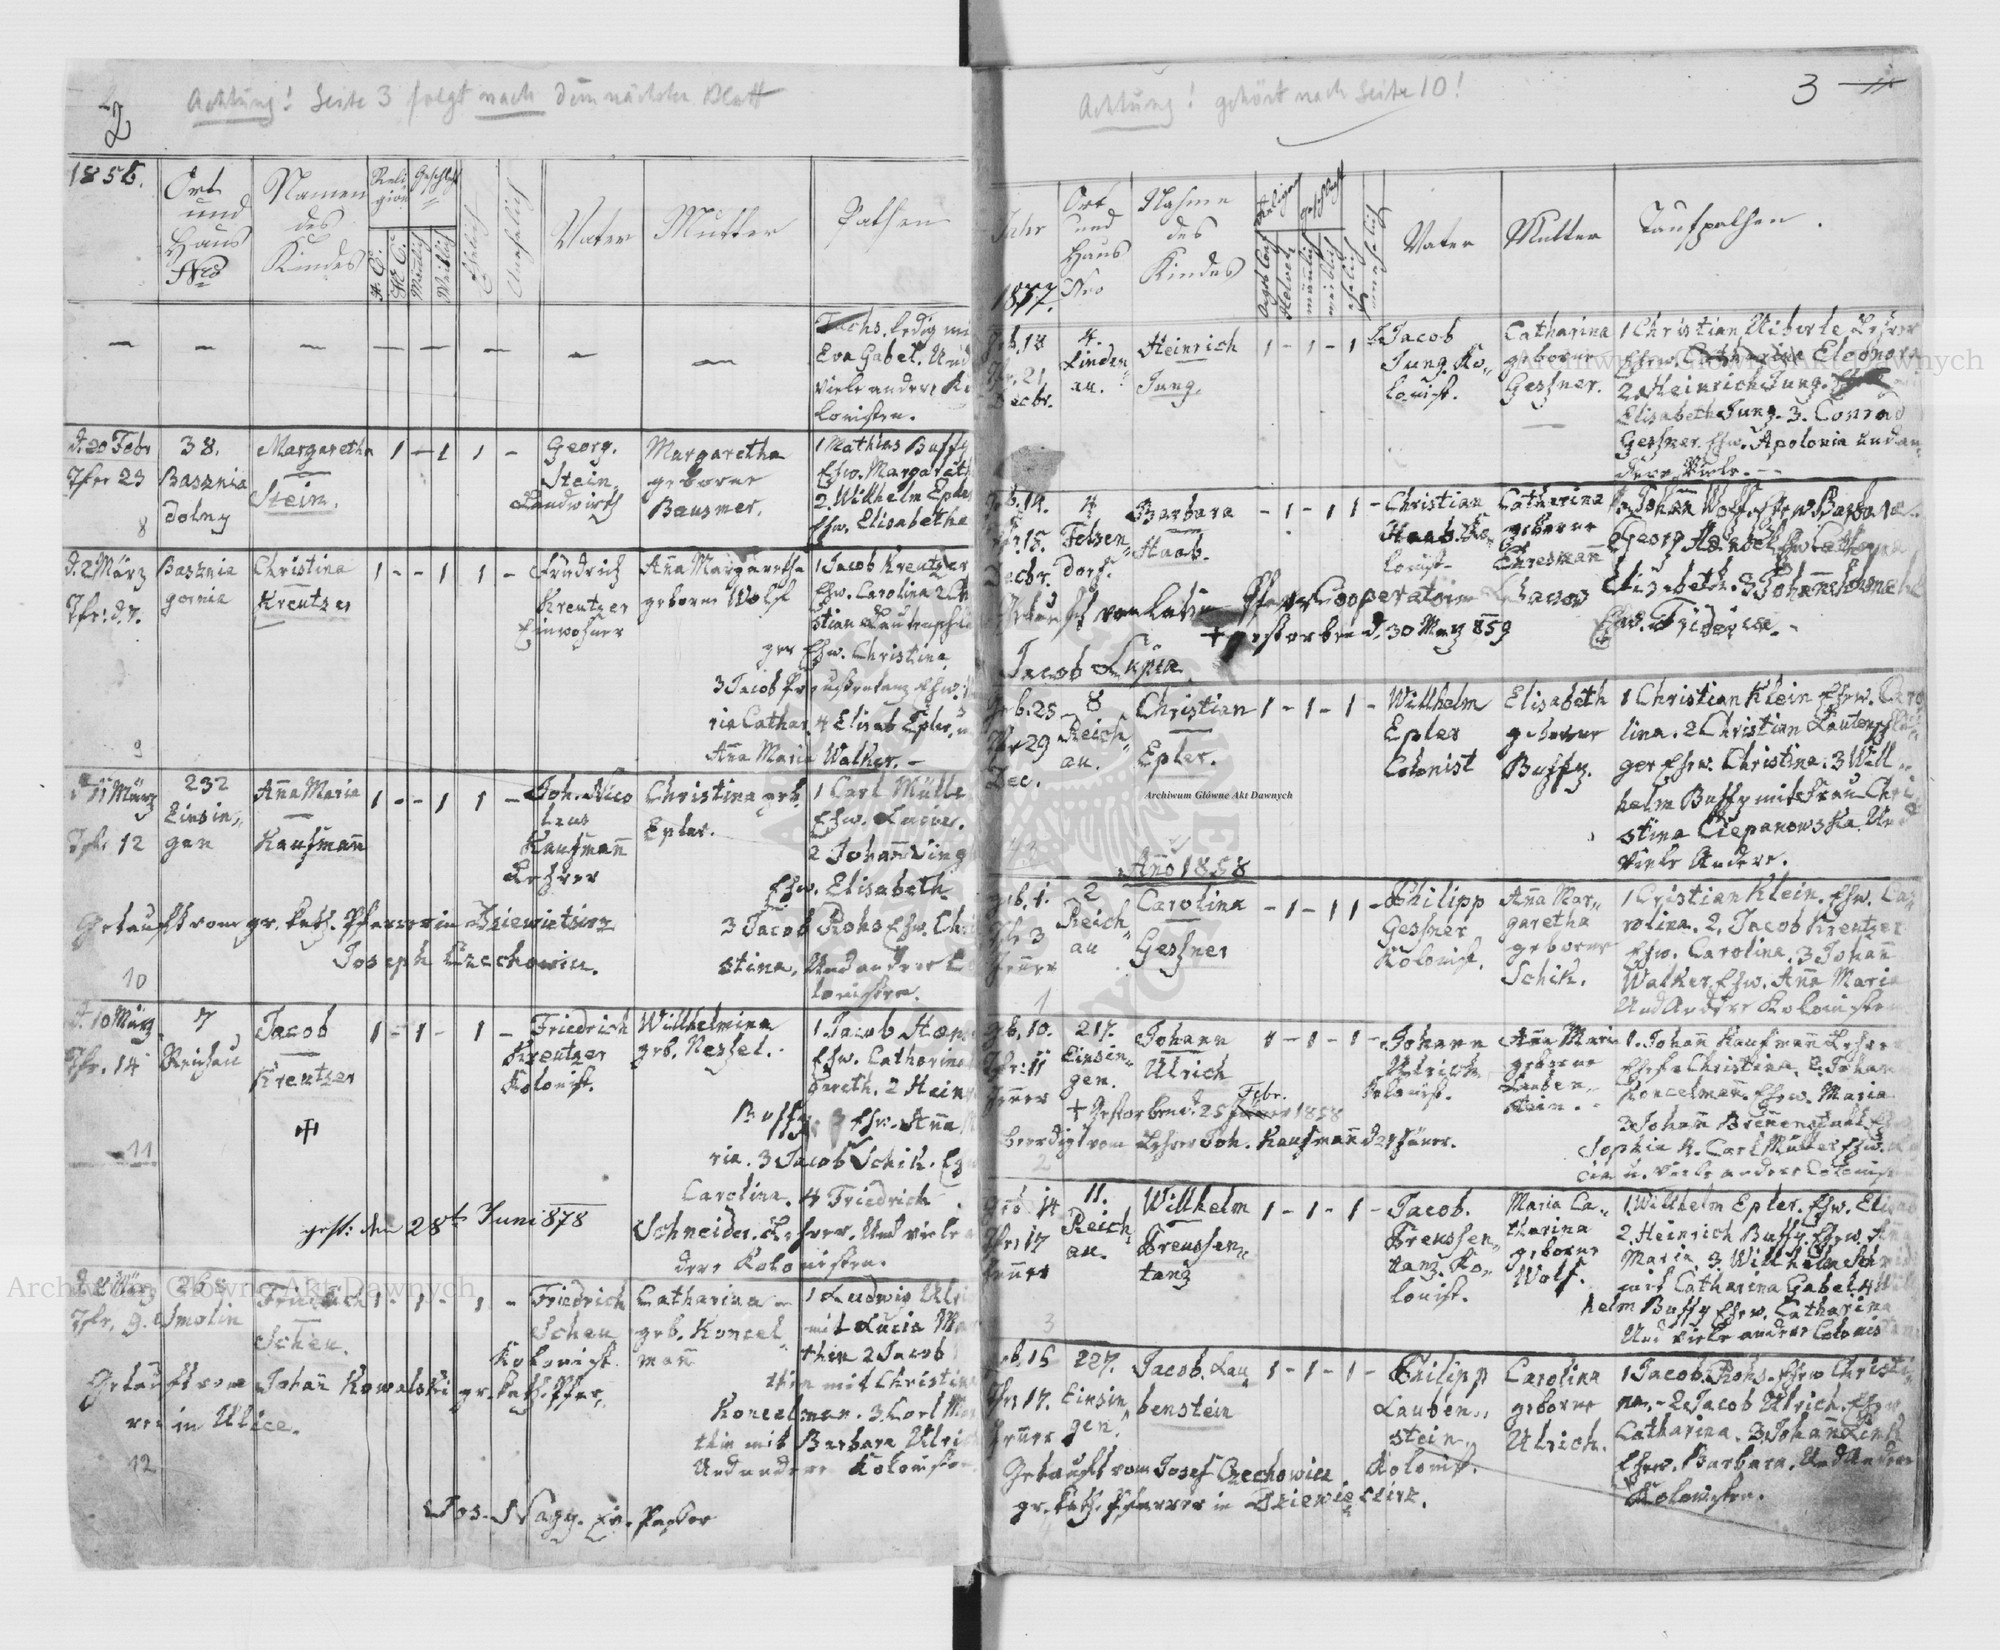 2
Achtung! Seite 3 folgt nach dem nächsten Blatt
1856.
Ort und Haus Nro
Namen des Kindes
Religion
A. C.
H. C.
Geschlecht
Männlich
Weiblich
Ehelich
Unehelich
Vater
Mutter
Pathen
Fuchs. ledig mi
Eva Gabel. Und
viele andere Ko
lonisten.
d. 20 Febr
Tfr 23
8
38.
Basznia
dolny
Margaretha
Stein.
1 - 1 1 -
Georg.
Stein.
Landwirth
Margaretha
geborne
Bausmer.
1 Mathias Buffy
Ehw. Margareth
2. Willhelm Epler
Ehw. Elisabetha
d. 2 März
Tfr: d. 7.
9
Basznia
gornia
Christina
Kreutzer
1 - - 1 1 -
Friedrich
Kreutzer
Einwohner
Anna Margaretha
geborne Wolf
1 Jacob Kreutzer
Ehw. Carolina 2 Ch
stian Lautenschlä
ger Ehw. Christina
3 Jacob Preussentanz Ehw.
ria Cathar. 4 Elisab Epler, u
Anna Maria Walker. -
11 März
Tfr 12
10
232
Einsin-
gen
Anna Maria
Kaufmann
1 - - 1 1 -
Joh. Nico
laus
Kaufmann
Lehrer
Christina geb.
Epler.
1 Carl Mülle
Ehw. Lucia.
2 Johann
Ehw. Elisabeth
3 Jacob Rohs Ehw. Chri
stina. Und andere Co
lonisten.
Getauft vom gr. kath. Pfarrer in Dziewietsirz
Joseph Czechowicz.
d. 10 März
Tfr. 14
11
7
Reichau
Jacob
Kreutzer
1 - 1 - 1 -
Friedrich
Kreutzer
Kolonist.
Willhelmina
geb. Nessel.
1 Jacob
Ehw. Catharina
2 Hein
Buffy. Ehw. Anna M
ria. 3 Jacob Schik. Ehw
Carolina. 4 Friedrich
Schneider. Lehrer. Und viele an
dere Kolonisten.
gest: den 28ten Juni 1878
d. 8 März
Tfr. 9.
12
268
Smolin
Friedrich
Scheu.
1 - 1 - 1 -
Friedrich
Scheu
Kolonist.
Catharina
geb. Koncel
mann
1 Ludwig Ulri
mit Lucia Mar
thin 2 Jacob
thin mit Christina
Koncelman. 3. Carl Mar
thin mit Barbara Ulrich
Und andere Kolonisten
Getauft von Johan Kowalski gr. kath. Pfar-
rer in Ulice.
Jos. Nagy. Ev. Pastor
3
Achtung! gehört nach Seite 10!
Jahr
1857.
Ort und Haus Nro
Nahme des Kindes
Religion
Augsb Conf
Helvet
Geschlecht
mänlich
weiblich
ehelich
unehelich
Vater
Mutter
Taufpathen.
Geb. 18
Tfr. 21
Decbr.
4.
Linden-
au.
Heinrich
Jung.
1 - 1 - 1
Jacob
Jung. Ko-
lonist.
Catharina
geborne
Gessner.
1 Christian Uiberle Lehrer
Ehw. Catharina Eleonore
2. Heinrich Jung.
Elisabetha Jung. 3. Conrad
Gessner Ehw. Apolonia und an-
dere Viele. -
Geb. 14.
Tfr. 15.
Decbr.
4
Felsen-
dorf.
Barbara
Haab.
- 1 - 1 1 -
Christian
Haab. Ko-
lonist
Catharina
geborne
Chresman
Johann Wolf. Ehw. Barbara.
Georg Ehw. Catharina
Elisabeth. 3 Johann
Ehw. Friderica. -
Getauft vom latin Pfarr Cooperator
+ gestorben d. 30 May 859
Jacob Lupia
Geb. 25
Tfr 29
Dec.
8
Reich-
au.
Christian
Epler.
1 - 1 - 1 -
Willhelm
Epler
Colonist
Elisabeth
geborne
Buffy.
1 Christian Klein Ehw. Caro
lina. 2 Christian Lautenschlä-
ger Ehw. Christina. 3 Will-
helm Buffy mit Frau Chri-
stina Ciepanowska. Und
Viele Andere.
Anno 1858
geb. 1.
Tfr 3
Jenner
1
2
Reich-
au
Carolina
Gessner
- 1 - 1 1 -
Philipp
Gessner
Kolonist.
Anna Mar-
garetha
geborne
Schik.
1 Cristian Klein. Ehw. Ca-
rolina. 2. Jacob Kreutzer
Ehw. Carolina. 3 Johann
Walker Ehw. Anna Maria
Und Andere Kolonisten
geb. 10.
Tfr: 11
Jenner
2
217.
Einsin-
gen.
Johann
Ulrich
1 - 1 - 1 -
Johann
Ulrich
Kolonist.
Anna Maria
geborne
Lauben-
stein.
1. Johann Kaufmann Lehrer
Ehefr. Christina. 2. Johan
Koncelmann. Ehew. Maria
3 Johann Brennenstuhl Ehw
Sophia 4. Carl Müller Ehw. Lu
cia u. viele andere Colonisten
+ Gestorben d. 25 Febr. 1858
beerdigt vom Lehrer Joh. Kaufmann
Geb 14
Tfr 17
Jenner
3
11.
Reich-
au.
Willhelm
Preussen-
tanz
1 - 1 - 1 -
Jacob.
Preussen-
tanz. Ko-
lonist.
Maria Ca-
tharina
geborne
Wolf.
1. Willhelm Epler. Ehw. Elisab
2. Heinrich Buffy. Ehew. Anna
Maria. 3. Willhelm
mit Catharina Gabel 4 Will
helm Buffy Ehw. Catharina
Und viele andere Colonisten
Geb. 15
Tfr 17.
Jenner
227.
Einsin-
gen.
Jacob. Lau-
benstein
1 - 1 - 1 -
Philipp
Lauben-
stein.
Kolonist.
Carolina
geborne
Ulrich.
1 Jacob Rohs. Ehw Christi-
na. - 2 Jacob Ulrich. Ehw
Catharina. 3 Johann
Ehew. Barbara. Und Andere
Kolonisten.
Getauft vom Josef Czechowicz
gr. kath. Pfarrer in Dziewiecierz.
Archiwum Główne Akt Dawnych
Archiwum Główne Akt Dawnych
Archiwum Główne Akt Dawnych